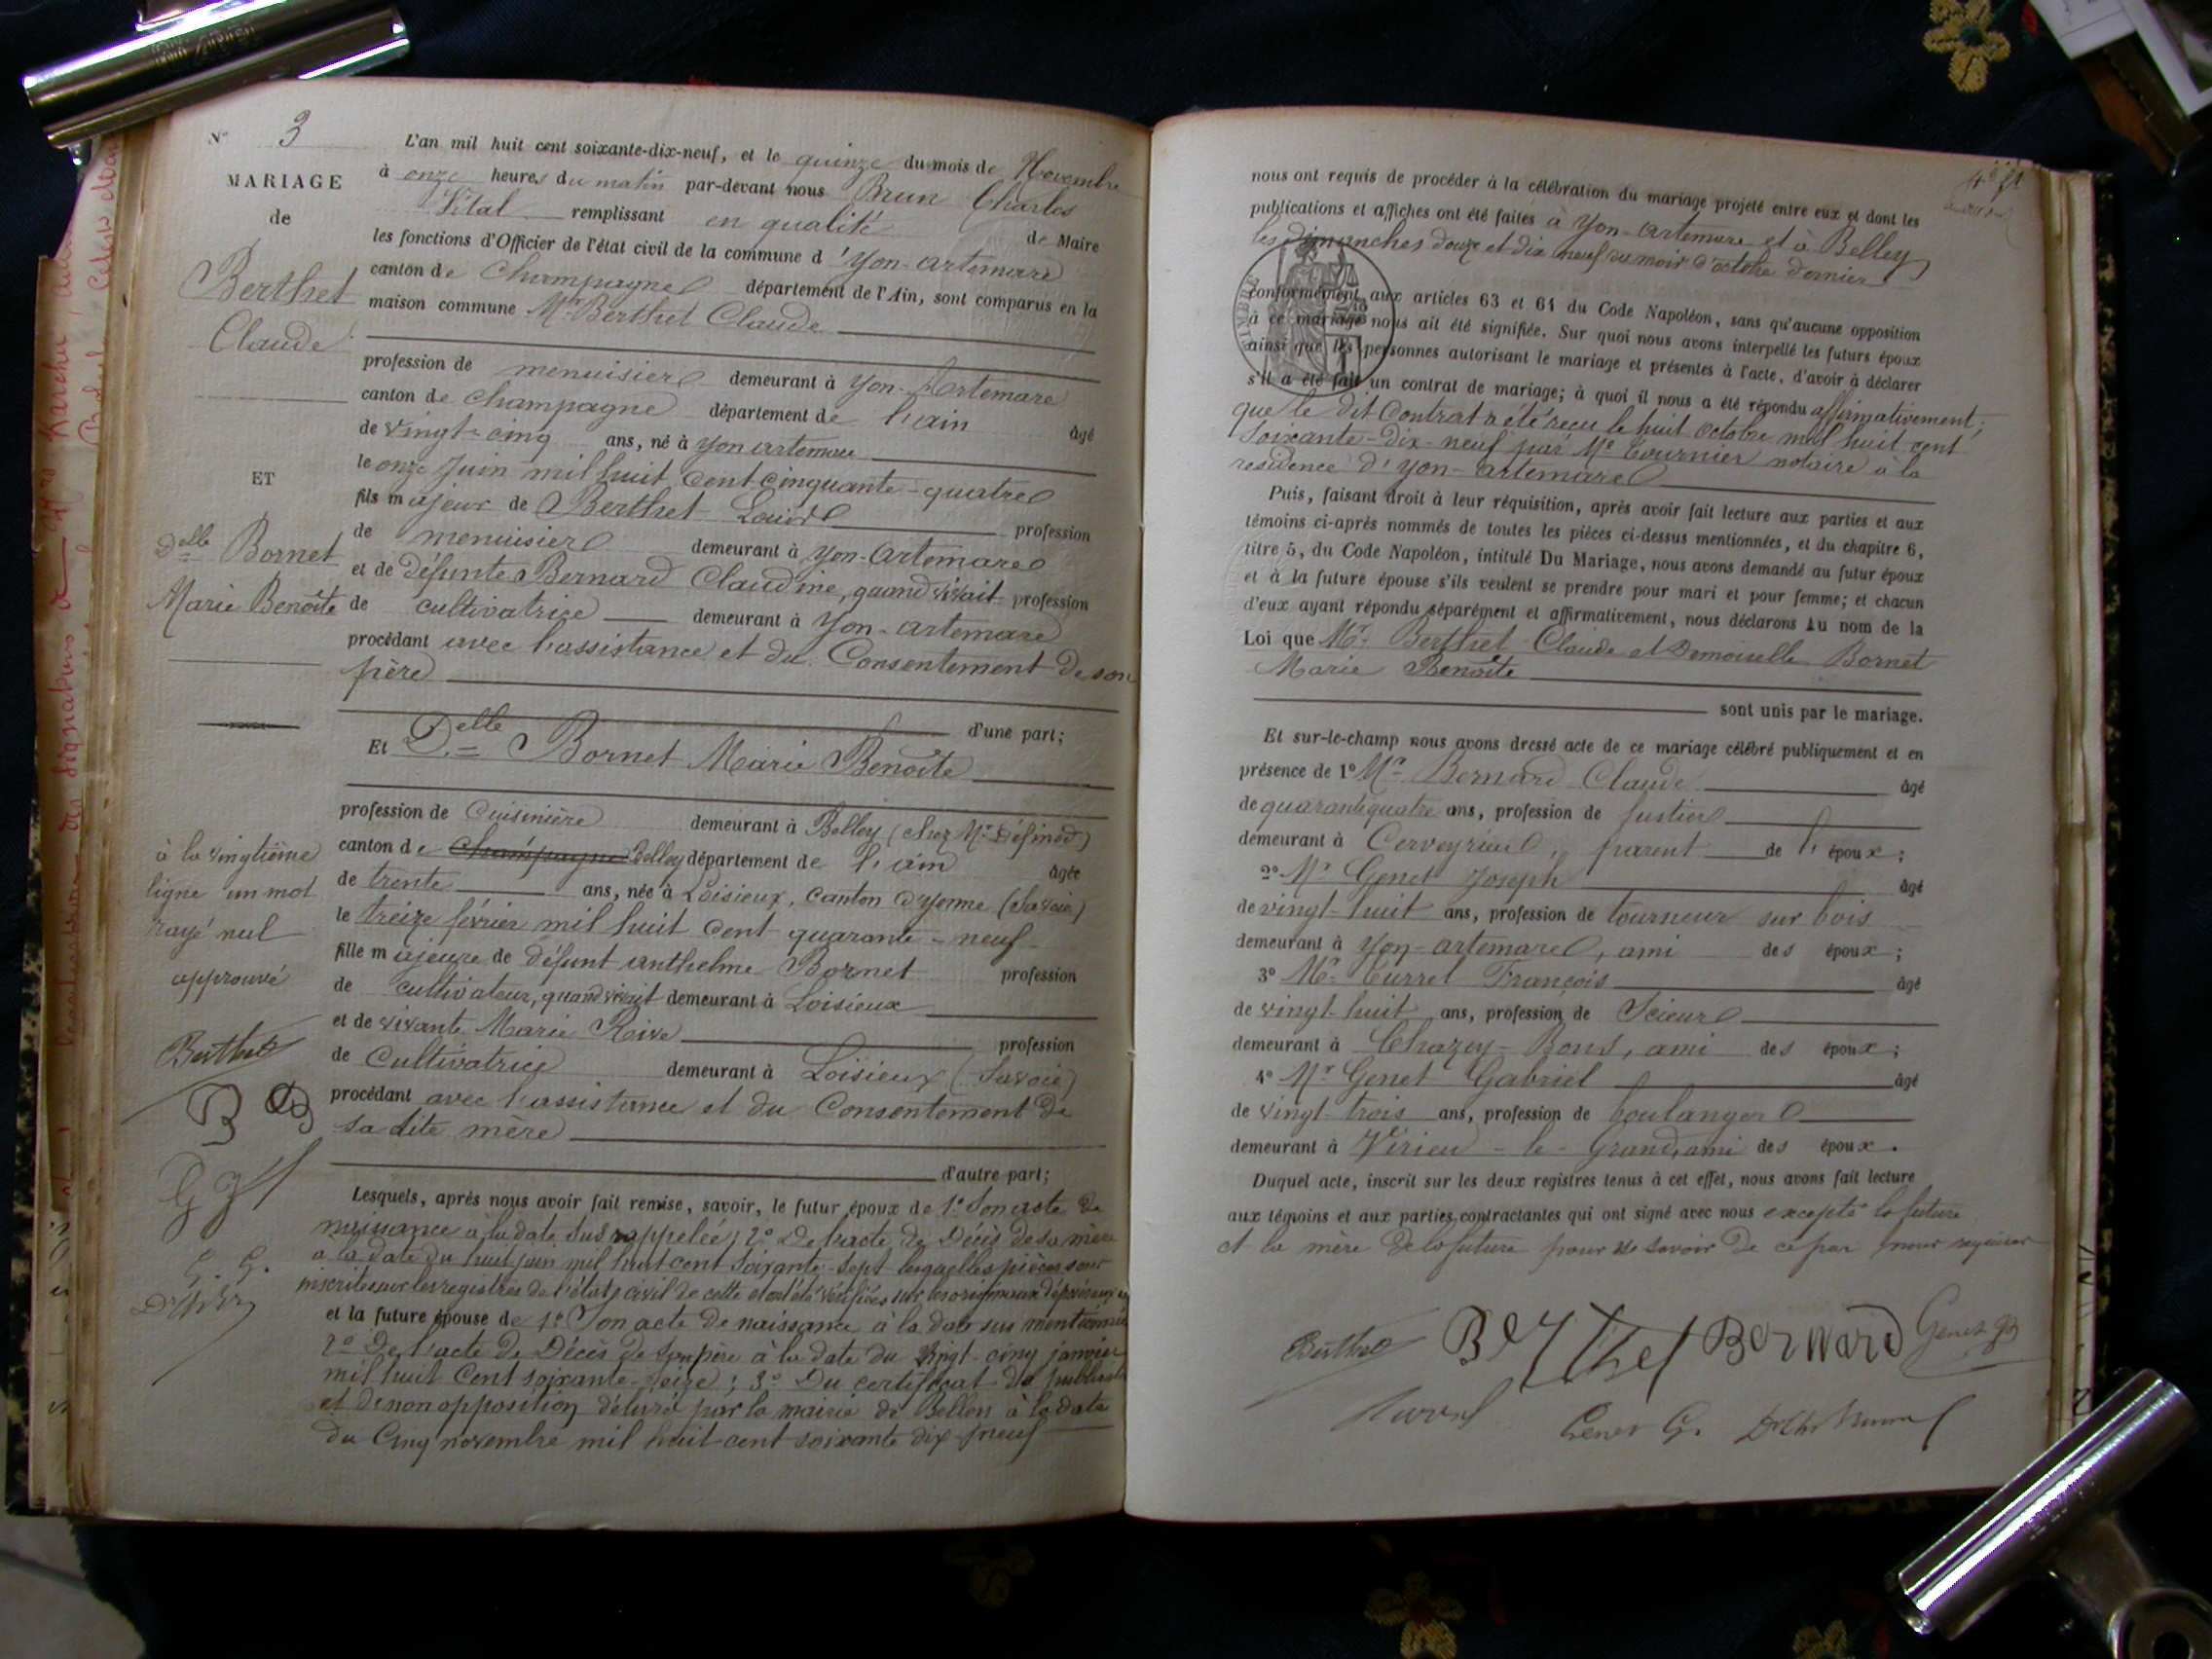 N° 3
MARIAGE
de
Berthet
Claude
ET
Delle Bornet
Marie Benoîte
à la vingtième
ligne un mot
rayé nul
approuvé
Berthet
B
G J
G. G.
L'an mil huit cent soixante-dix-neuf, et le quinze du mois de Novembre
à onze heures du matin par-devant nous Brun Charles
Vital remplissant en qualité de Maire
les fonctions d'Officier de l'état civil de la commune d'Yon-artemare
canton de Champagne département de l'Ain, sont comparus en la
maison commune Mr Berthet Claude
profession de menuisier demeurant à Yon-Artemare
canton de Champagne département de l'ain âgé
de vingt-cinq ans, né à Yon artemare
le onze Juin mil huit Cent Cinquante-quatre
fils majeur de Berthet Louis profession
de menuisier demeurant à Yon-Artemare
et de défunte Bernard Claudine, quand vivait profession
de cultivatrice demeurant à Yon-artemare
procédant avec l'assistance et du Consentement de son
père
d'une part;
Et Delle Bornet Marie Benoîte
profession de Cuisinière demeurant à Belley (chez Mr Défined)
canton de Champagne Belley département de l'ain âgée
de trente ans, née à Loisieux, Canton d'Yenne (Savoie)
le treize février mil huit cent quarante-neuf
fille majeure de défunt anthelme Bornet profession
de cultivateur, quand vivait demeurant à Loisieux
et de vivante Marie Rive profession
de Cultivatrice demeurant à Loisieux (Savoie)
procédant avec l'assistance et du Consentement de
sa dite mère
d'autre part;
Lesquels, après nous avoir fait remise, savoir, le futur époux de 1° Son acte de
naissance à la date sus rappelée; 2° De l'acte de Décès de sa mère
à la date du huit juin mil huit cent soixante-sept lesquelles pièces sont
inscrites sur les registres de l'état civil de cette et ont été vérifiées sur les originaux déposés aux
et la future épouse de 1° Son acte de naissance à la date sus mentionnée
2° De l'acte de Décès de son père à la date du vingt-cinq janvier
mil huit Cent soixante-seize; 3° Du certificat de publicat
et de non opposition délivré par la mairie de Belley à la date
du Cinq novembre mil huit cent soixante dix-neuf
nous ont requis de procéder à la célébration du mariage projeté entre eux et dont les
publications et affiches ont été faites à Yon-artemare et à Belley
les dimanches douze et dix neuf du mois d'octobre dernier
TIMBRE
conformément aux articles 63 et 64 du Code Napoléon, sans qu'aucune opposition
à ce mariage nous ait été signifiée. Sur quoi nous avons interpellé les futurs époux
ainsi que les personnes autorisant le mariage et présentes à l'acte, d'avoir à déclarer
s'il a été fait un contrat de mariage; à quoi il nous a été répondu affirmativement,
que le dit Contrat a été reçu le huit octobre mil huit cent
soixante-dix-neuf par Me Tournier notaire à la
residence d'Yon-artemare
Puis, faisant droit à leur réquisition, après avoir fait lecture aux parties et aux
témoins ci-après nommés de toutes les pièces ci-dessus mentionnées, et du chapitre 6,
titre 5, du Code Napoléon, intitulé Du Mariage, nous avons demandé au futur époux
et à la future épouse s'ils veulent se prendre pour mari et pour femme; et chacun
d'eux ayant répondu séparément et affirmativement, nous déclarons au nom de la
Loi que Mr Berthet Claude et Demoiselle Bornet
Marie Benoîte
sont unis par le mariage.
Et sur-le-champ nous avons dressé acte de ce mariage célébré publiquement et en
présence de 1° Mr Bernard Claude âgé
de quarante quatre ans, profession de fustier
demeurant à Cerveyrieu, parent de l'époux;
2° Mr Genet Joseph âgé
de vingt-huit ans, profession de tourneur sur bois
demeurant à Yon-artemare, ami des époux;
3° Mr Curret François âgé
de vingt-huit ans, profession de Scieur
demeurant à Chazey-Bons, ami des époux;
4° Mr Genet Gabriel âgé
de vingt-trois ans, profession de boulanger
demeurant à Virieu-le-Grand, ami des époux.
Duquel acte, inscrit sur les deux registres tenus à cet effet, nous avons fait lecture
aux témoins et aux parties contractantes qui ont signé avec nous excepté la future
et la mère de la future pour ne savoir de ce par nous requises
Berthet Berthet Bernard Genet
Genet G.